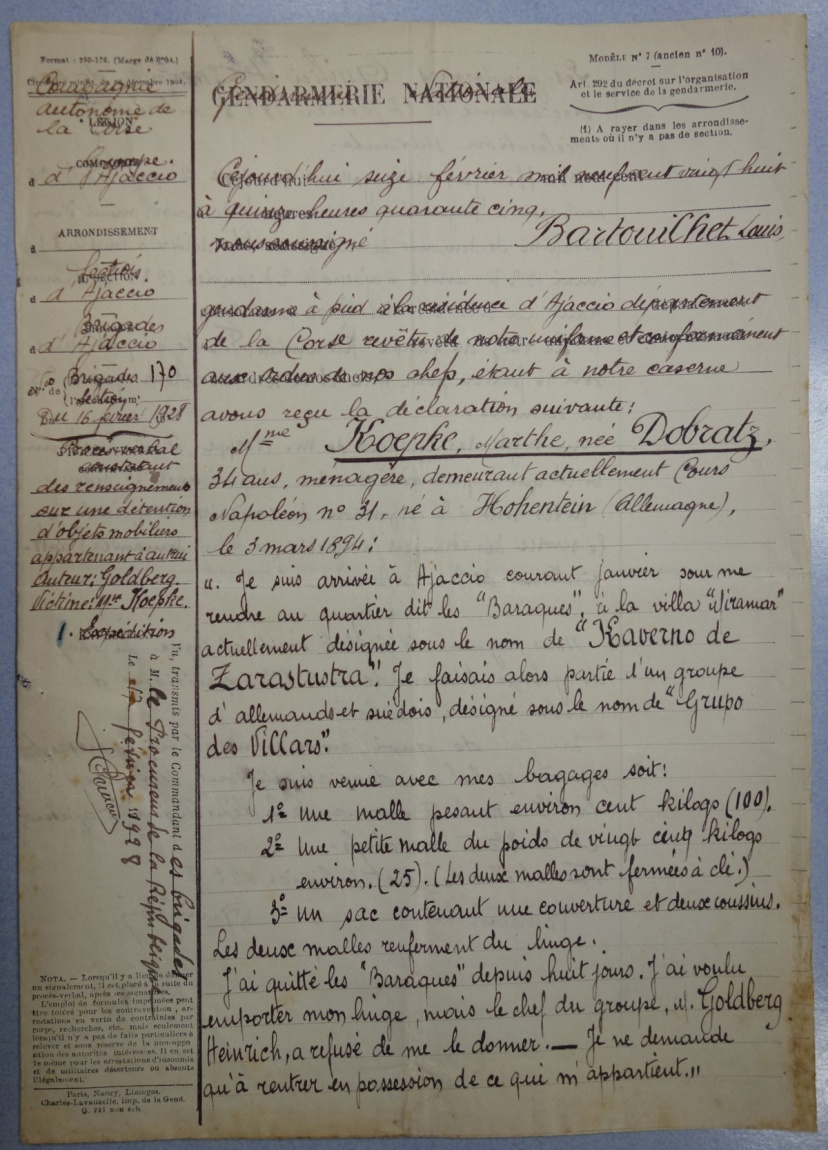 Format : 290-176. (Marge de 0m04.)
Compagnie
autonome de
la Corse
LÉGION
COMPAGNIE
d'Ajaccio
ARRONDISSEMENT
à
Section
d'Ajaccio
Brigades
d'Ajaccio
Brigades 170
Du 16 février 1928
Procès-verbal
constatant
des renseignements
sur une détention
d'objets mobiliers
appartenant à autrui
Auteur: Goldberg
Victime: Mme Koepke.
1. Expédition
Vu, transmis par le Commandant des brigades
à M. le Procureur de la République
Le février 1928
NOTA. — Lorsqu'il y a lieu de donner
un signalement, il est placé à la suite du
procès-verbal, après les signatures.
L'emploi de formules imprimées peut
être toléré pour les contraventions, ar-
restations en vertu de contraintes par
corps, recherches, etc. mais seulement
lorsqu'il n'y a pas de faits particuliers à
relever et sous réserve de la non-oppo
sition des autorités intéressées. Il en est
de même pour les arrestations d'insoumis
et de militaires déserteurs ou absents
illégalement.
Paris, Nancy, Limoges,
Charles-Lavauzelle, imp. de la Gend.
MODÈLE N° 7 (ancien n° 10).
Art. 292 du décret sur l'organisation
et le service de la gendarmerie.
(1) A rayer dans les arrondisse-
ments où il n'y a pas de section.
GENDARMERIE NATIONALE
Cejourd'hui seize février mil neuf cent vingt huit
à quinze heures quarante cinq.
nous soussigné Bartouilhet Louis,
gendarme à pied à la résidence d'Ajaccio département
de la Corse revêtu de notre uniforme et conformément
aux ordres de nos chefs, étant à notre caserne
avons reçu la déclaration suivante:
Mme Koepke, Marthe, née Dobratz,
34 ans, ménagère, demeurant actuellement Cours
Napoléon n° 31, né à Hohentein (Allemagne),
le 3 mars 1894:
"Je suis arrivée à Ajaccio courant janvier pour me
rendre au quartier dit les "Baraques", à la villa "Miramar"
actuellement désignée sous le nom de "Kaverno de
Zarastustra". Je faisais alors partie d'un groupe
d'allemands et suédois, désigné sous le nom de "Grupo
des Villars".
Je suis venue avec mes bagages soit:
1° Une malle pesant environ cent kilogs (100).
2° Une petite malle du poids de vingt cinq kilogs
environ. (25). (Les deux malles sont fermées à clé.)
3° Un sac contenant une couverture et deux coussins.
Les deux malles renferment du linge.
J'ai quitté les "Baraques" depuis huit jours. J'ai voulu
emporter mon linge, mais le chef du groupe, M. Goldberg
Heinrich, a refusé de me le donner. — Je ne demande
qu'à rentrer en possession de ce qui m'appartient."